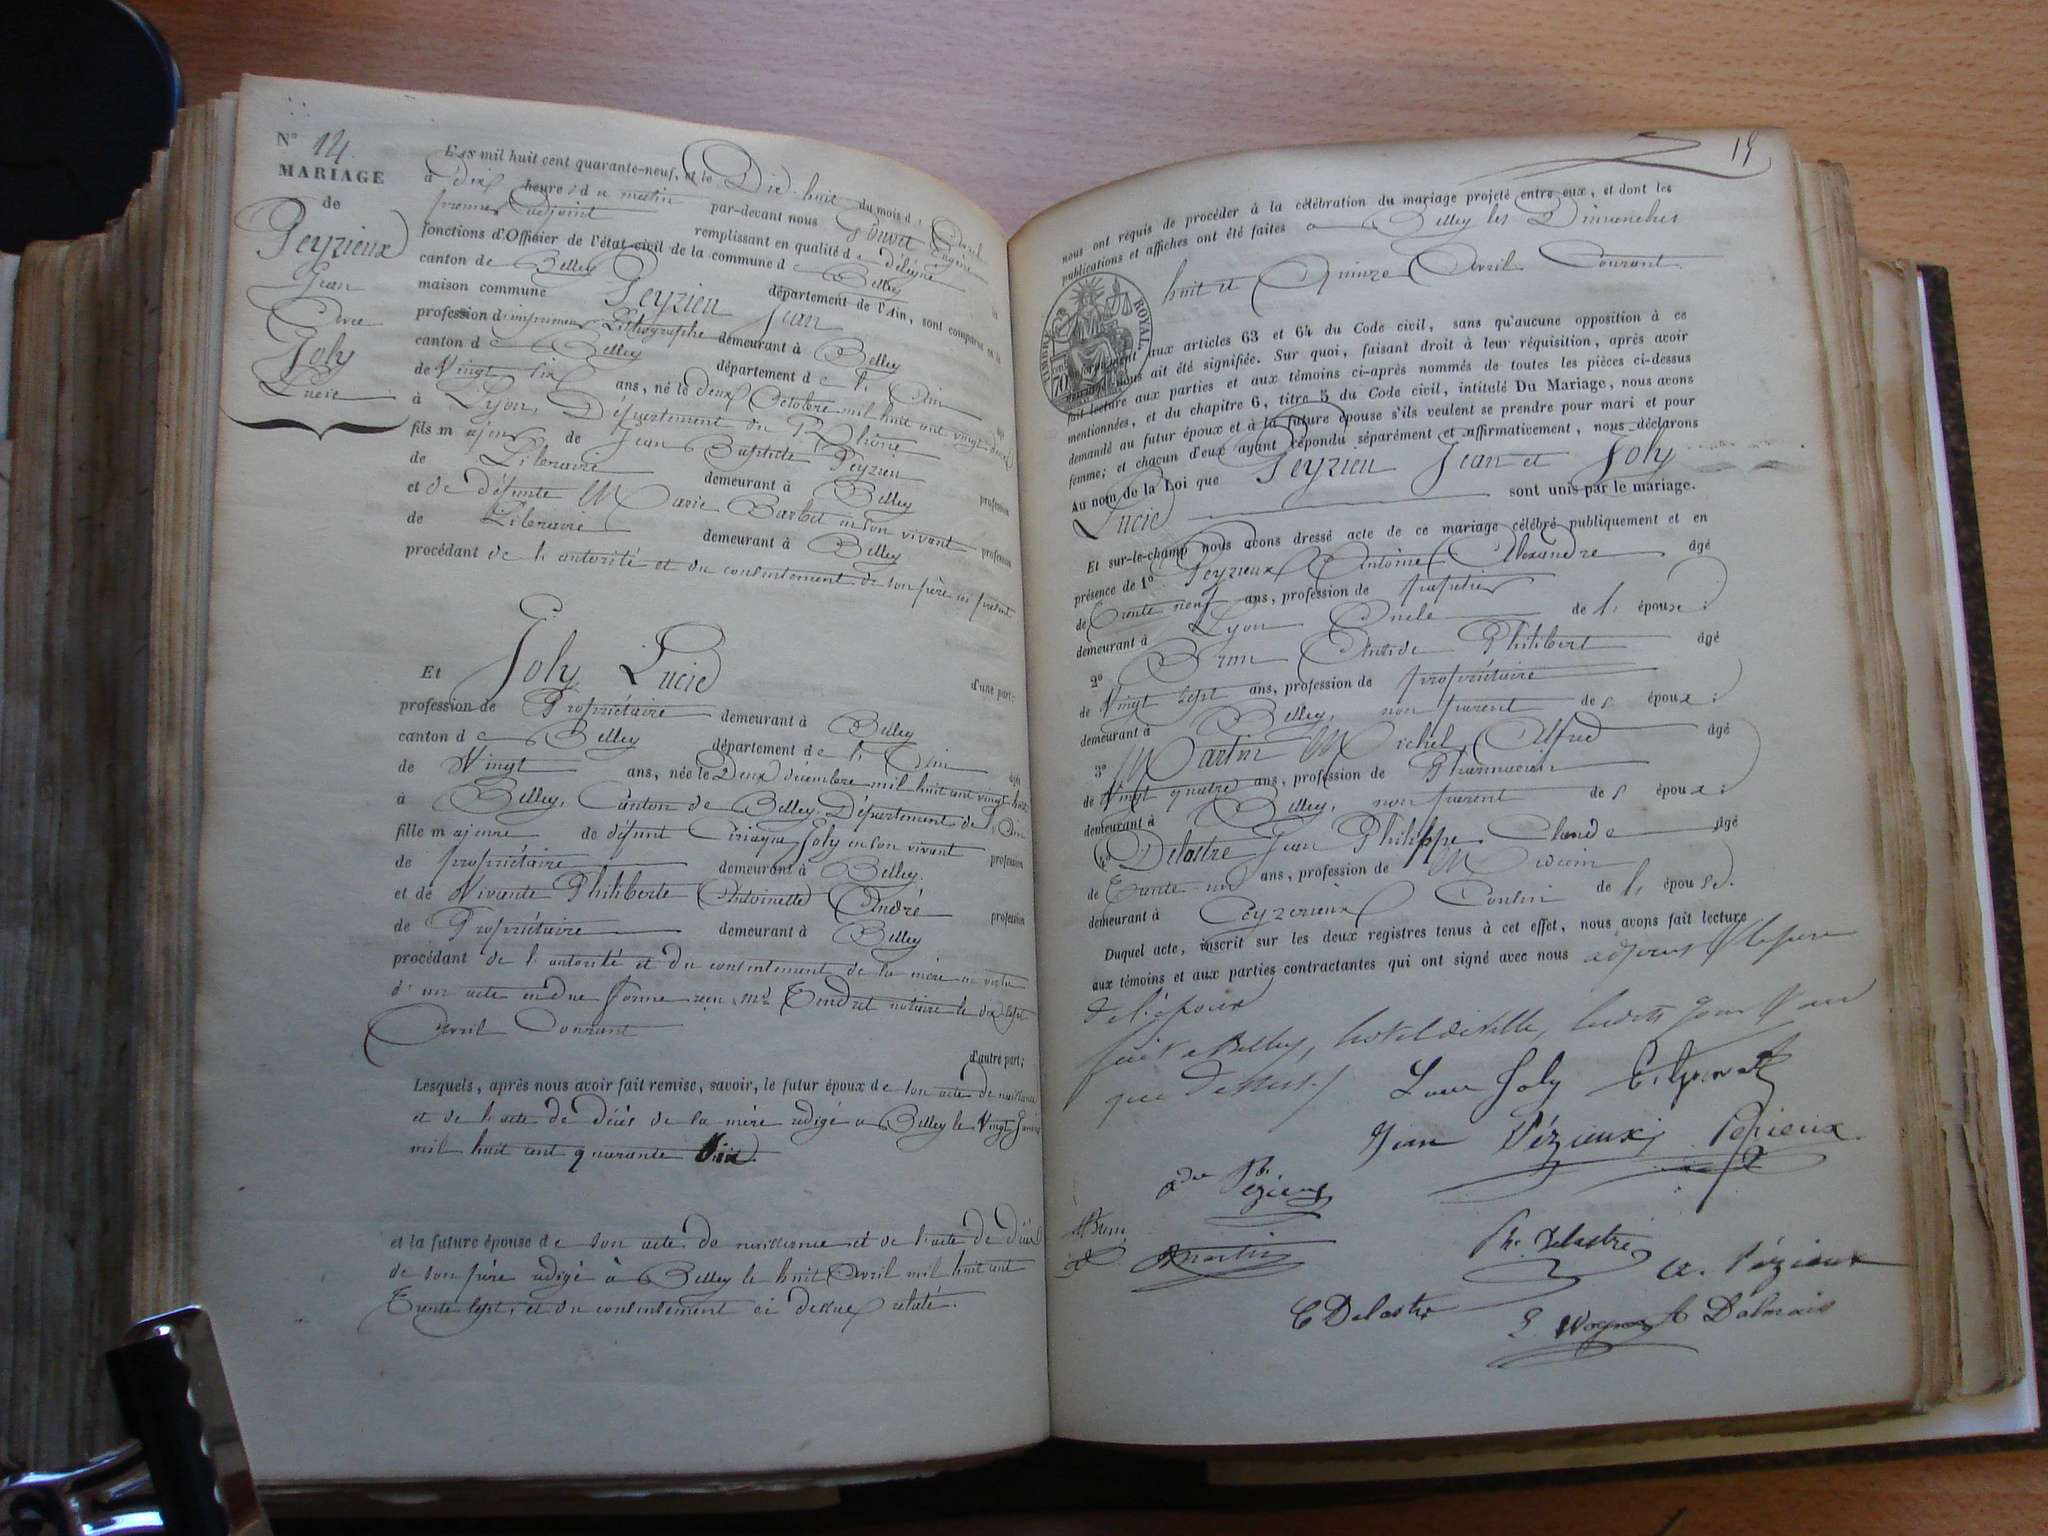 N° 14.
MARIAGE
de
Peyzieux
Jean
Avec
Joly
Lucie
L'an mil huit cent quarante-neuf, et le Dix-huit du mois d'Avril
à dix heures du matin par-devant nous
premier adjoint remplissant en qualité de délégué
fonctions d'Officier de l'état civil de la commune de Belley
canton de Belley département de l'Ain, sont comparus en la
maison commune Peyzieu Jean
profession d'imprimeur Lithographe demeurant à Belley
canton de Belley département de l'Ain
de Vingt six ans, né le deux Octobre mil huit cent vingt deux
à Lyon, Département du Rhône
fils majeur de Jean Baptiste Peyzieu profession
de Libraire demeurant à Belley
et de défunte Marie Barbet en son vivant profession
de Libraire demeurant à Belley
procédant de l'autorité et du consentement de son père ici présent
d'une part;
Et Joly Lucie
profession de Propriétaire demeurant à Belley
canton de Belley département de l'Ain âgée
de Vingt ans, née le Deux décembre mil huit cent vingt huit
à Belley, Canton de Belley, Département de l'Ain
fille majeure de défunt Ciriaque Joly en son vivant profession
de propriétaire demeurant à Belley.
et de Vivante Philiberte Antoinette André profession
de Propriétaire demeurant à Belley
procédant de l'autorité et du consentement de sa mère en vertu
d'un acte en due forme reçu Me Tendret notaire le dix sept
Avril Courant
d'autre part;
Lesquels, après nous avoir fait remise, savoir, le futur époux de son acte de naissance
et de l'acte de décès de sa mère rédigé à Belley le Vingt
mil huit cent quarante
et la future épouse de son acte de naissance et de l'acte de décès
de son père rédigé à Belley le huit Avril mil huit cent
Trente sept, et du consentement ci dessus relaté.
nous ont requis de procéder à la célébration du mariage projeté entre eux, et dont les
publications et affiches ont été faites à Belley les Dimanches
huit et Quinze Avril Courant
TIMBRE ROYAL
70
conformément aux articles 63 et 64 du Code civil, sans qu'aucune opposition à ce
nous ait été signifiée. Sur quoi, faisant droit à leur réquisition, après avoir
fait lecture aux parties et aux témoins ci-après nommés de toutes les pièces ci-dessus
mentionnées, et du chapitre 6, titre 5 du Code civil, intitulé Du Mariage, nous avons
demandé au futur époux et à la future épouse s'ils veulent se prendre pour mari et pour
femme; et chacun d'eux ayant répondu séparément et affirmativement, nous déclarons
Au nom de la Loi que Peyzieu Jean et Joly
Lucie sont unis par le mariage.
Et sur-le-champ nous avons dressé acte de ce mariage célébré publiquement et en
présence de 1° Peyzieux Antoine Alexandre âgé
de Trente neuf ans, profession de
demeurant à Lyon Oncle de l'époux;
2° Brun Claude Philibert âgé
de Vingt sept ans, profession de propriétaire
demeurant à Belley, non parent des époux;
3° Martin Michel Alfred âgé
de Vingt quatre ans, profession de Pharmacien
demeurant à Belley, non parent des époux;
4° Delastre Jean Philippe Claude âgé
de Trente ans, profession de Médecin
demeurant à Ceyzerieux Cousin de l'épouse.
Duquel acte, inscrit sur les deux registres tenus à cet effet, nous avons fait lecture
aux témoins et aux parties contractantes qui ont signé avec nous adjoint & le père
de l'époux
fait à Belley, hotel de ville, lesdits jour & an
que dessus./.
Lucie Joly
Jean Pézieux Pézieux
Pézieux
Brun
Martin
Ph. Delastre
A. Pézieux
C Delastre
Dalmais